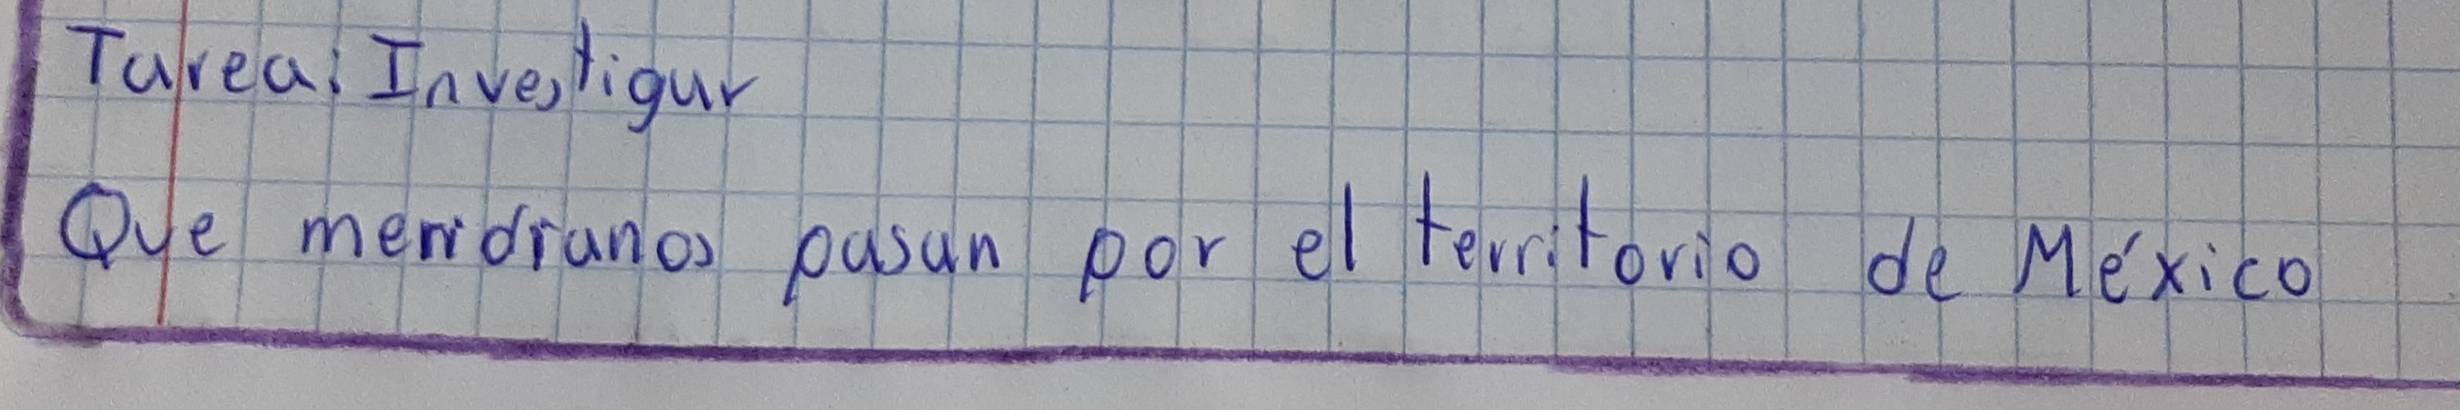 Tarea: Investigar
Que meridianos pasan por el territorio de México